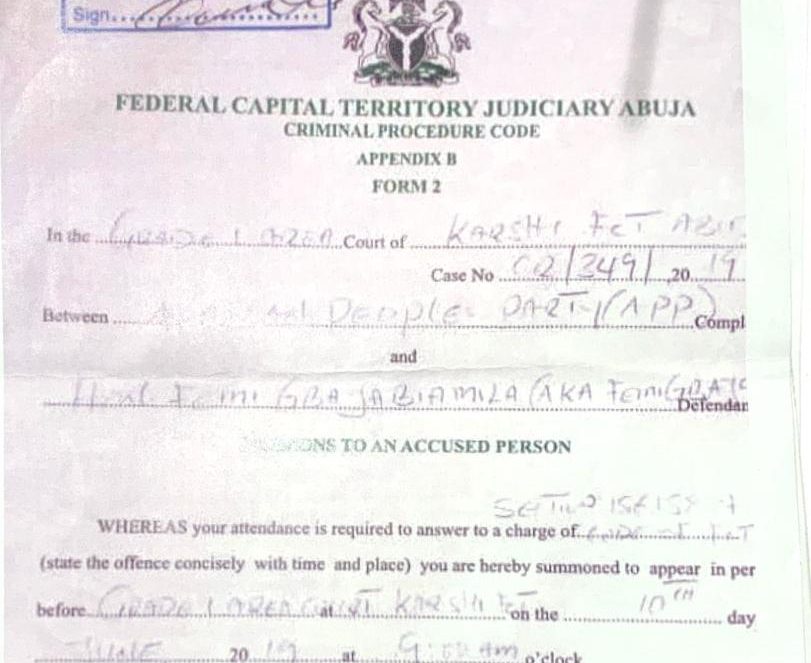 Sign
FEDERAL CAPITAL TERRITORY JUDICIARY ABUJA
CRIMINAL PROCEDURE CODE
APPENDIX B
FORM 2
In the GRADE 1 AREA Court of KARSHI FCT
Case No CR/349/ 20 19
Between Peoples PARTY (APP) Compl
and
Femi GBAJABIAMILA (AKA Femi
Defendan
TO AN ACCUSED PERSON
WHEREAS your attendance is required to answer to a charge of
(state the offence concisely with time and place) you are hereby summoned to appear in per
before GRADE 1 AREA COURT at KARSHI on the 10TH day
JUNE 20 19 at 9:00 am o'clock